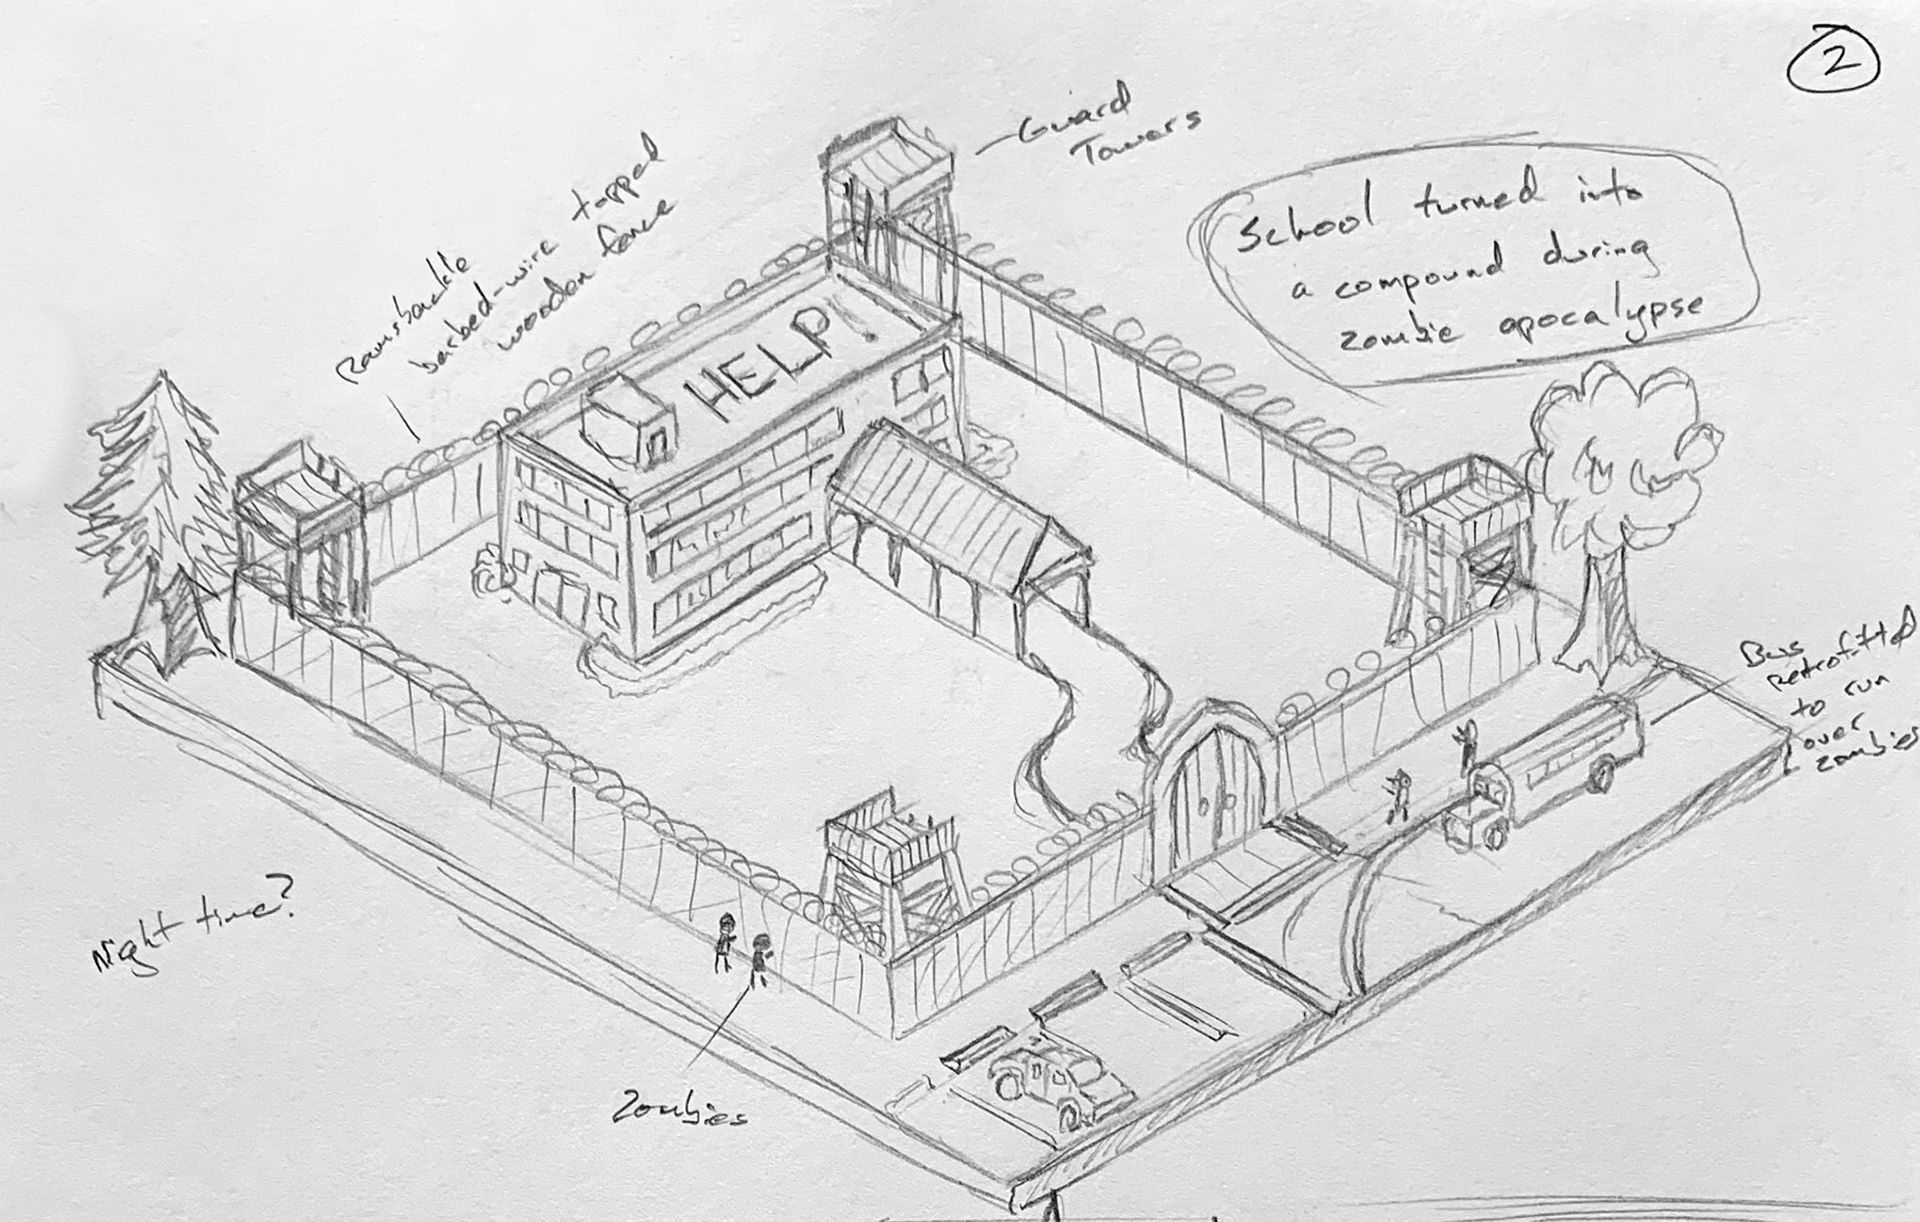 2
Guard
Towers
Ramshackle
barbed-wire topped
wooden fence
School turned into
a compound during
zombie apocalypse
HELP!
Bus
retrofitted
to run
over
zombies
Night time?
Zombies